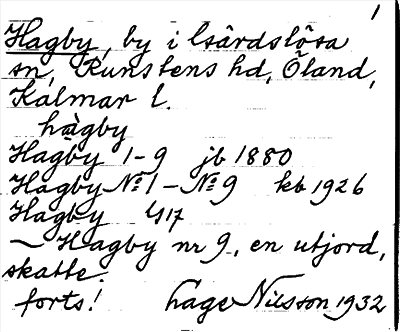 1
Hagby, by i Gärdslösa
sn, Runstens hd, Öland,
Kalmar l.
hàgby
Hagby 1-9 jb 1880
Hagby No 1 - No 9 kb 1926
Hagby 417
~ Hagby nr 9, en utjord,
skatte.
forts! Hage Nilsson 1932